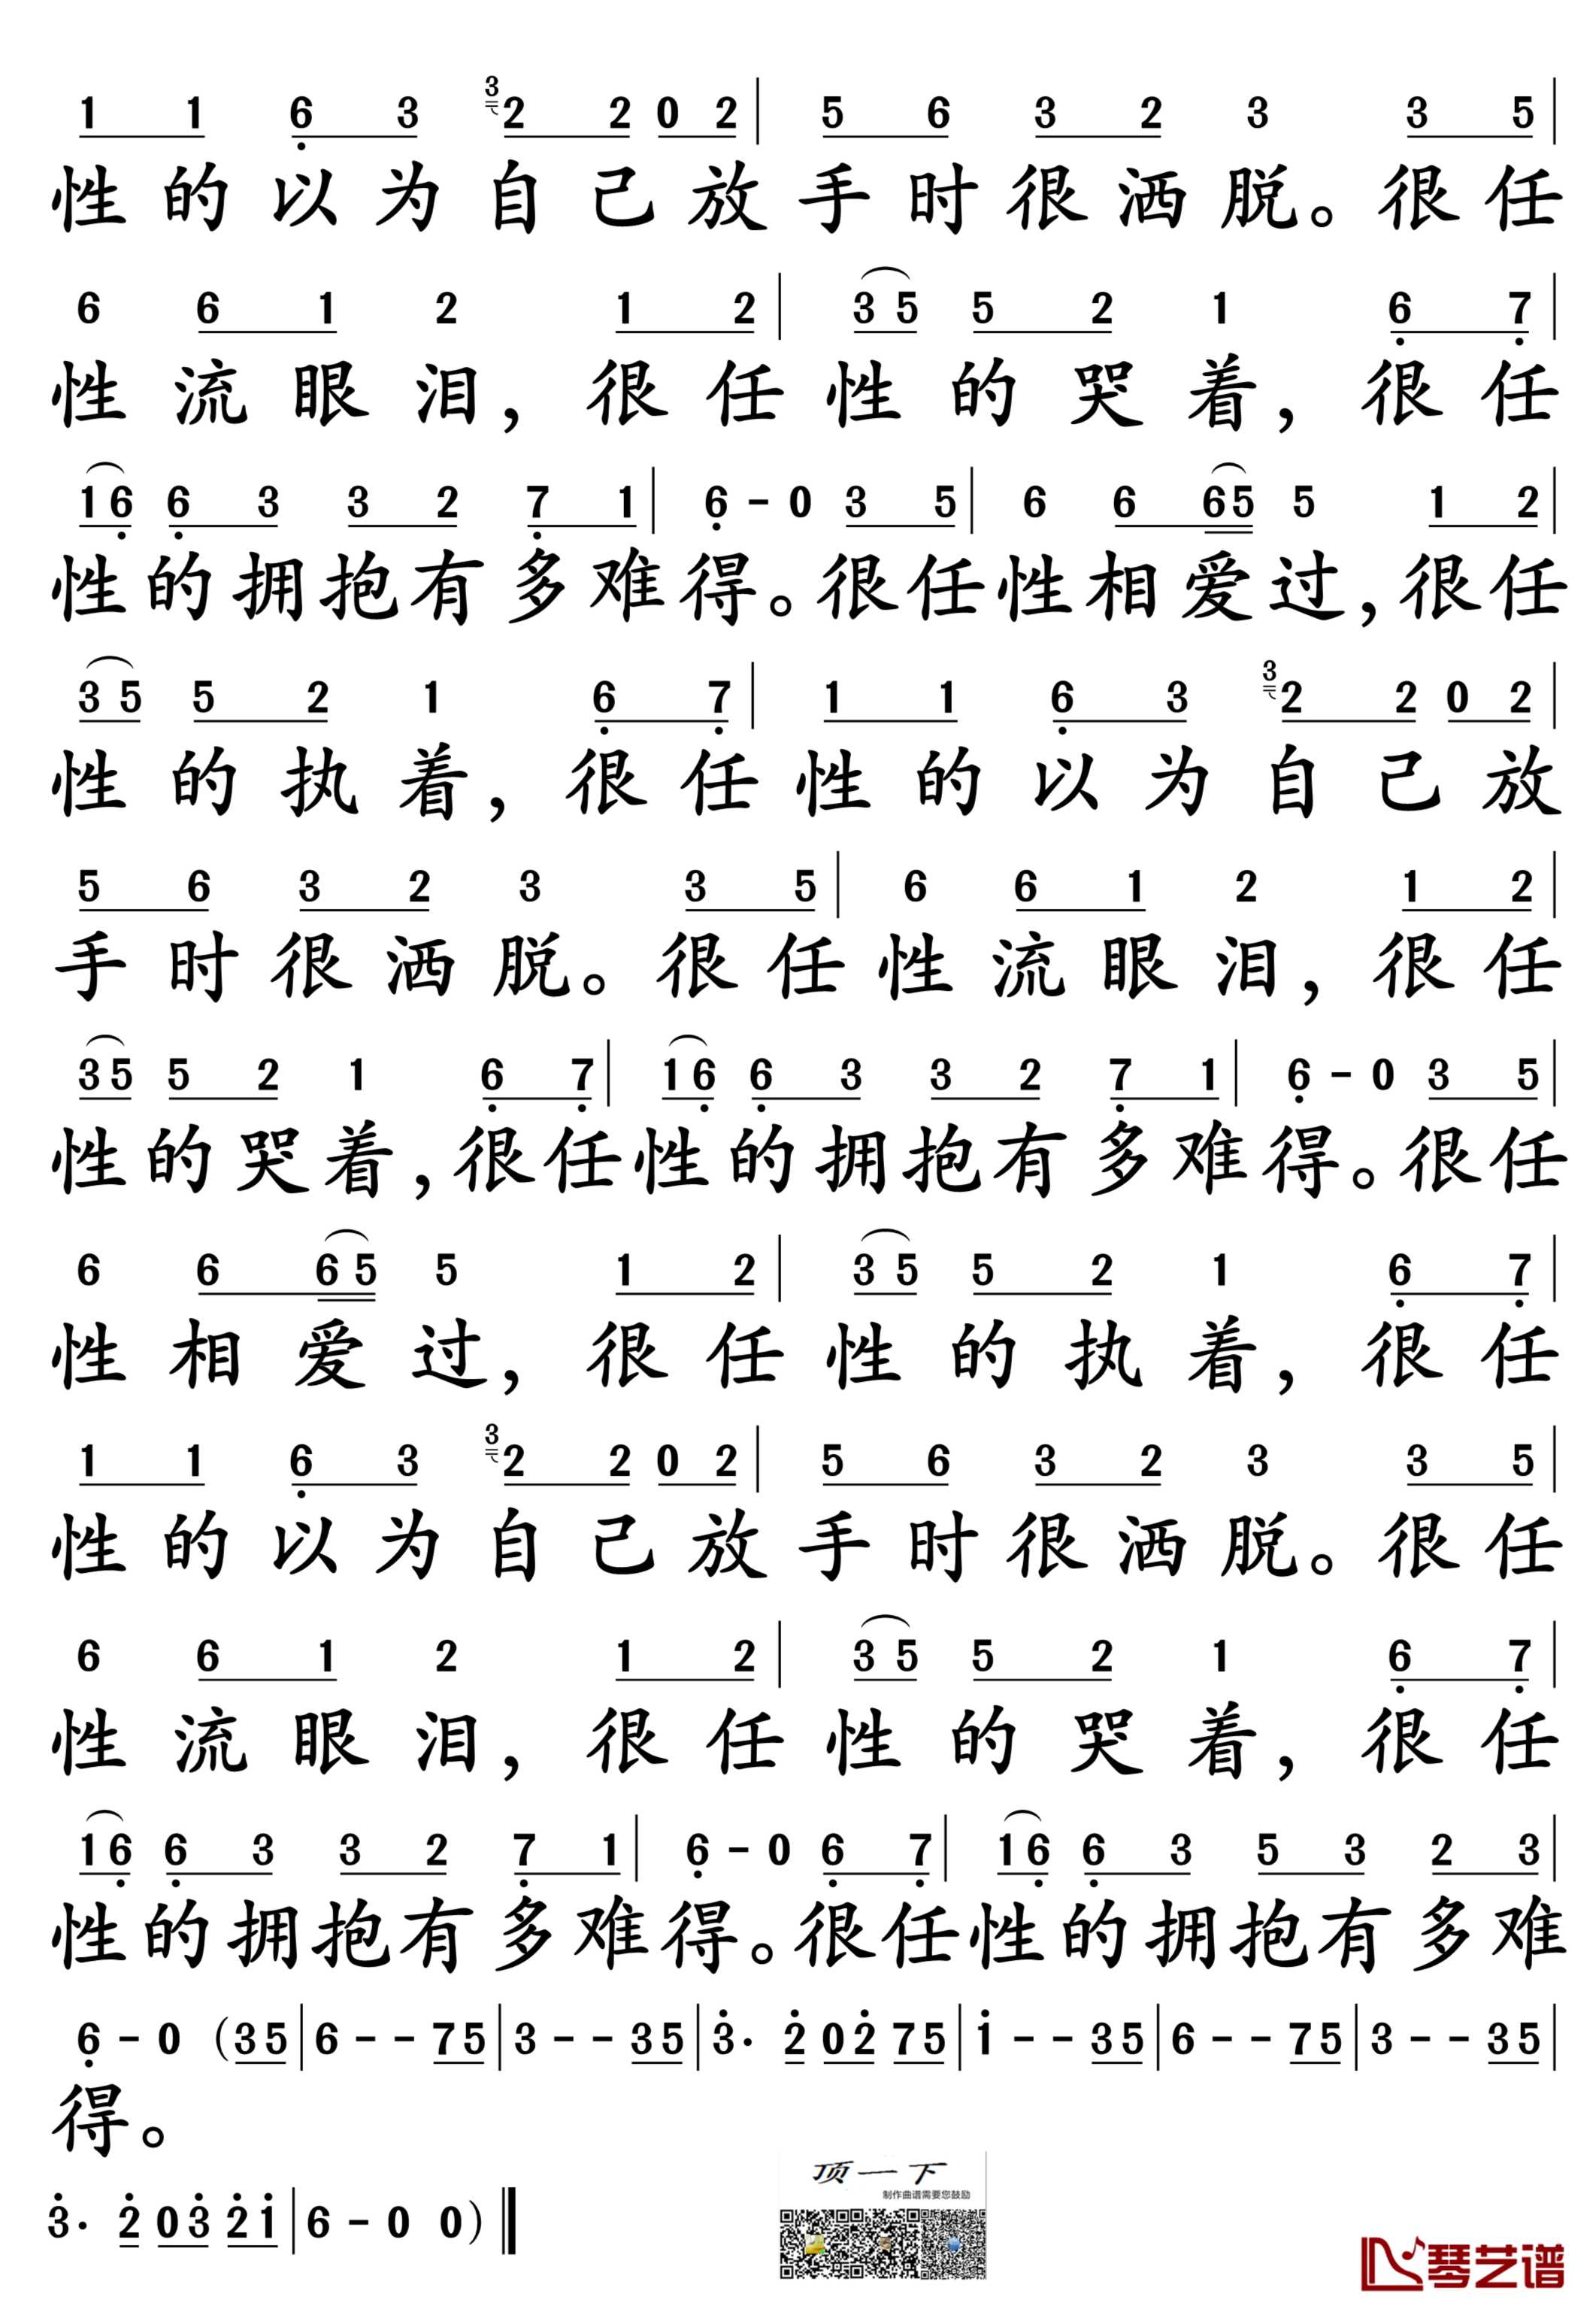 1 1 6 3 3 2 2 0 2 | 5 6 3 2 3 3 5 |
性的以为自己放手时很洒脱。很任
6 6 1 2 1 2 | 3 5 5 2 1 6 7 |
性流眼泪，很任性的哭着，很任
1 6 6 3 3 2 7 1 | 6 - 0 3 5 | 6 6 6 5 5 1 2 |
性的拥抱有多难得。很任性相爱过，很任
3 5 5 2 1 6 7 | 1 1 6 3 3 2 2 0 2 |
性的执着，很任性的以为自己放
5 6 3 2 3 3 5 | 6 6 1 2 1 2 |
手时很洒脱。很任性流眼泪，很任
3 5 5 2 1 6 7 | 1 6 6 3 3 2 7 1 | 6 - 0 3 5 |
性的哭着，很任性的拥抱有多难得。很任
6 6 6 5 5 1 2 | 3 5 5 2 1 6 7 |
性相爱过，很任性的执着，很任
1 1 6 3 3 2 2 0 2 | 5 6 3 2 3 3 5 |
性的以为自己放手时很洒脱。很任
6 6 1 2 1 2 | 3 5 5 2 1 6 7 |
性流眼泪，很任性的哭着，很任
1 6 6 3 3 2 7 1 | 6 - 0 6 7 | 1 6 6 3 5 3 2 3 |
性的拥抱有多难得。很任性的拥抱有多难
6 - 0 (3 5 | 6 - - 7 5 | 3 - - 3 5 | 3· 2 0 2 7 5 | 1 - - 3 5 | 6 - - 7 5 | 3 - - 3 5 |
得。
3· 2 0 3 2 1 | 6 - 0 0) ‖
顶一下
制作曲谱需要您鼓励
琴艺谱